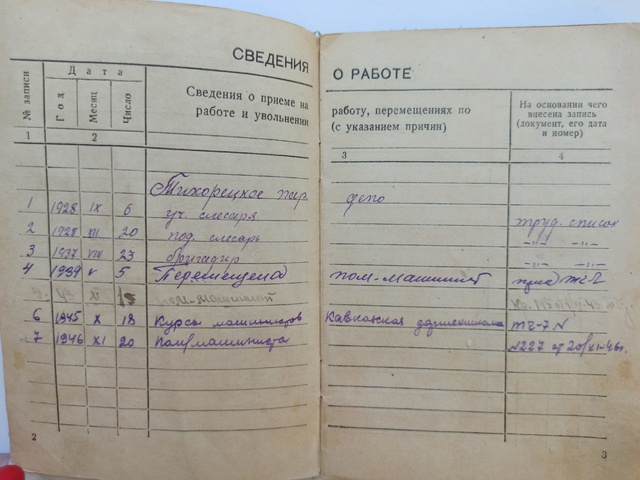 СВЕДЕНИЯ О РАБОТЕ
№ записи
Дата
Год
Месяц
Число
Сведения о приеме на
работе и увольнении
работу, перемещениях по
(с указанием причин)
На основании чего
внесена запись
(документ, его дата
и номер)
1 2 3 4
Тихорецкое пар. депо
1 1928 IX 6 уч. слесаря
2 1928 XII 20 под. слесарь труд. список
3 1937 VIII 23 бригадир -"- -"-
4 1939 V 5 Перемещена пом-машинист
пом-машинист
6 1945 X 18 Курсы машинистов Кавказская ТЧ-7 №
7 1946 XI 20 Пом/машиниста №227 от 20/XI-46г.
2
3